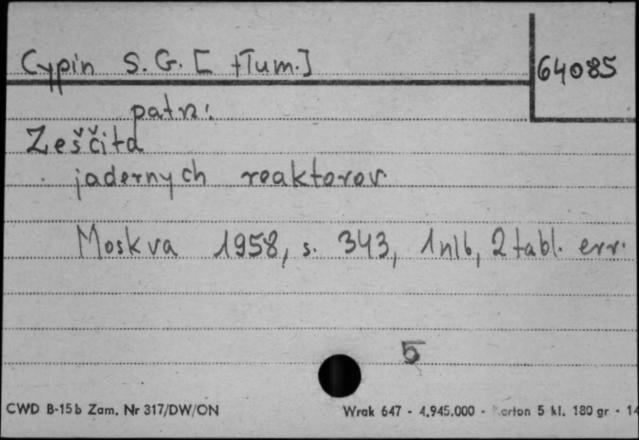 Cypin S.G. [tłum.]
64085
patrz:
Zeščita
jadernych reaktorov
Moskva 1958, s. 343, 1nlb, 2 tabl. err.
5
CWD B-15b Zam. Nr 317/DW/ON
Wrak 647 - 4.945.000 - Karton 5 kl. 180 gr - 14